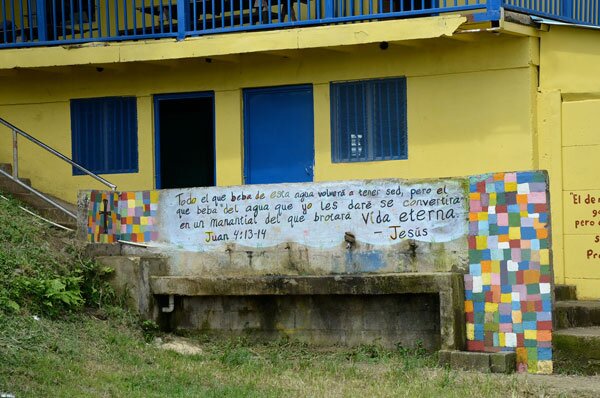 Todo el que beba de esta agua volverá a tener sed, pero el
que beba del agua que yo les daré se convertirá
en un manantial del que brotará vida eterna.
Juan 4:13-14 - Jesús
"El de
pero e